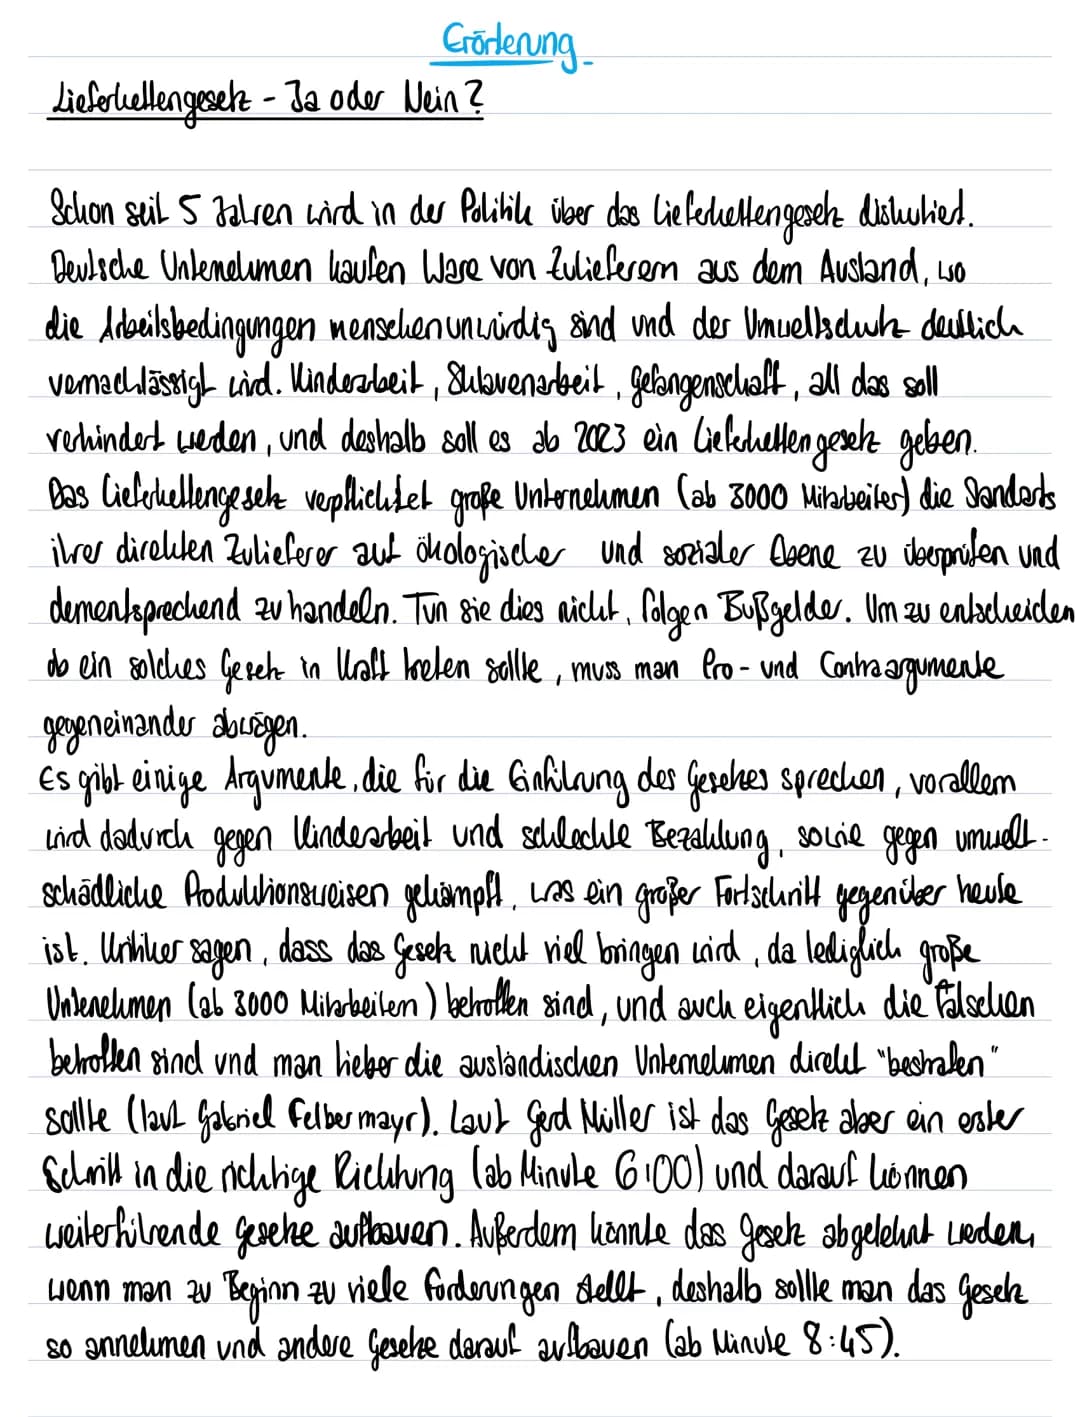 Erörterung
Lieferkettengesetz - Ja oder Nein?
Schon seit 5 Jahren wird in der Politik über das Lieferkettengesetz diskutiert.
Deutsche Unternehmen kaufen Ware von Zulieferern aus dem Ausland, wo
die Arbeitsbedingungen menschenunwürdig sind und der Umweltschutz deutlich
vernachlässigt wird. Kinderarbeit, Sklavenarbeit, Gefangenschaft, all das soll
verhindert werden, und deshalb soll es ab 2023 ein Lieferkettengesetz geben.
Das Lieferkettengesetz verpflichtet große Unternehmen (ab 3000 Mitarbeiter) die Standorts
ihrer direkten Zulieferer auf ökologischer und sozialer Ebene zu überprüfen und
dementsprechend zu handeln. Tun sie dies nicht, folgen Bußgelder. Um zu entscheiden
ob ein solches Gesetz in Kraft treten sollte, muss man Pro- und Contraargumente
gegeneinander abwägen.
Es gibt einige Argumente, die für die Einführung des Gesetzes sprechen, vorallem
wird dadurch gegen Kinderarbeit und schlechte Bezahlung, sowie gegen umwelt-
schädliche Produktionsweisen gekämpft, was ein großer Fortschritt gegenüber heute
ist. Kritiker sagen, dass das Gesetz nicht viel bringen wird, da lediglich große
Unternehmen (ab 3000 Mitarbeitern) betroffen sind, und auch eigentlich die falschen
betroffen sind und man lieber die ausländischen Unternehmen direkt "bestrafen"
sollte (laut Gabriel Felbermayr). Laut Gerd Müller ist das Gesetz aber ein erster
Schritt in die richtige Richtung (ab Minute 6:00) und darauf können
weiterführende Gesetze aufbauen. Außerdem könnte das Gesetz abgelehnt werden,
wenn man zu Beginn zu viele Forderungen stellt, deshalb sollte man das Gesetz
so annehmen und andere Gesetze darauf aufbauen (ab Minute 8:45).